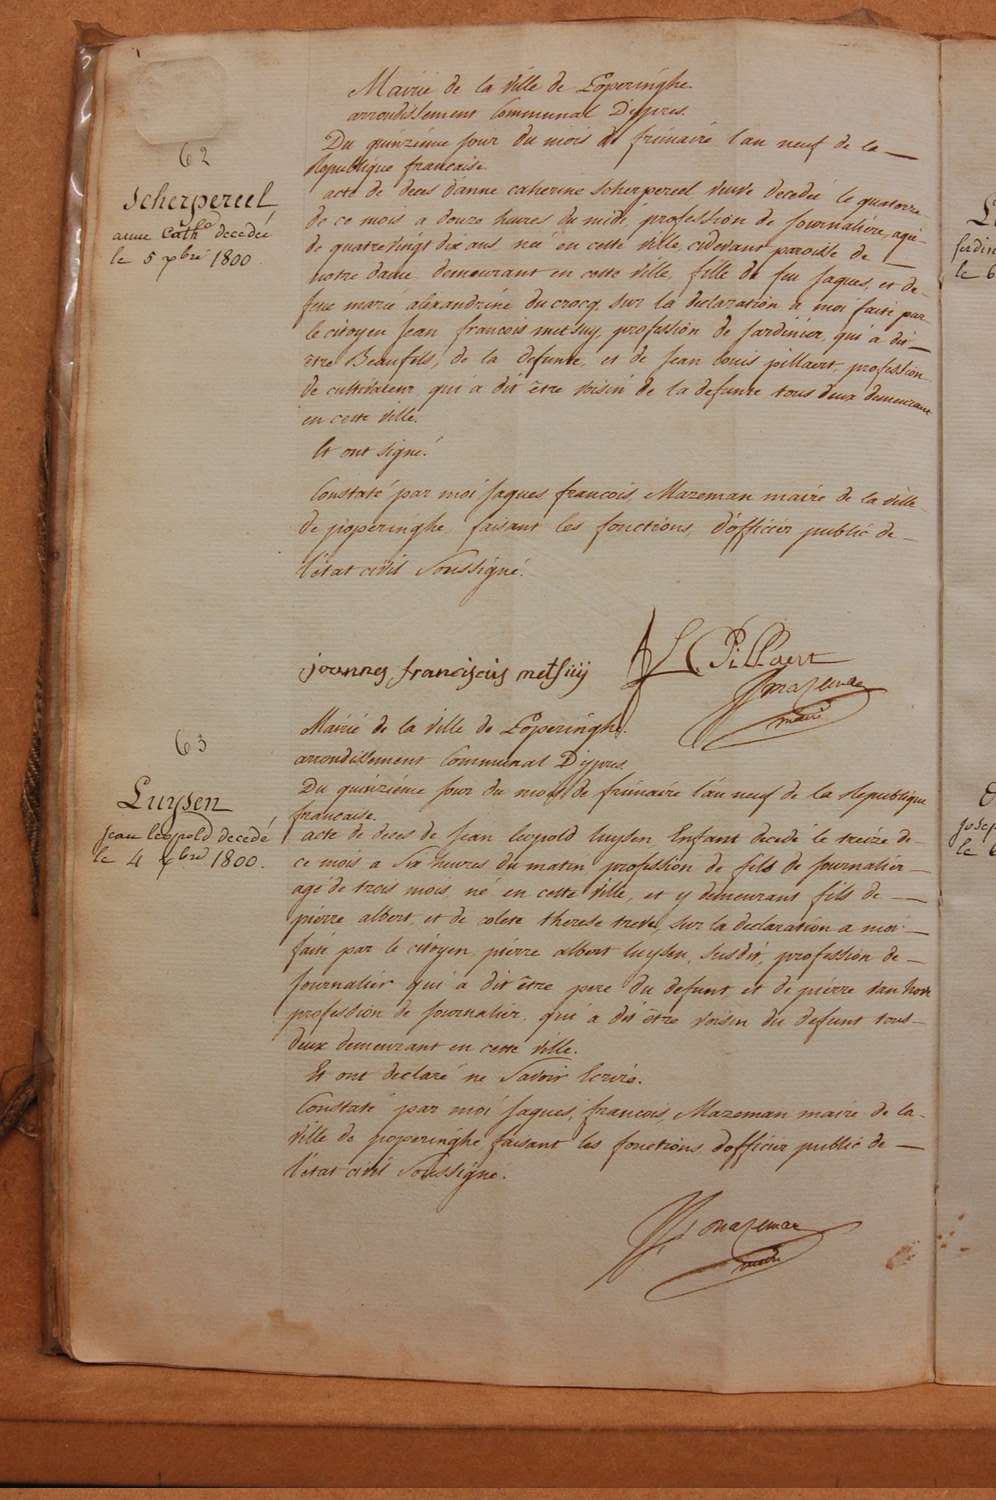 62
Scherpereel
anne Cath<sup>e</sup> decedeé
le 5 xbre 1800.
Mairie de la ville de Poperinghe
arrondissement Communal D'ypres.
Du quinziéme jour du mois de frimaire l'an neuf de la
Republique francaise
acte de deces d'anne catherine Scherpereel veuve decedeé le quatorze
de ce mois a douze heures du midi, profession de journaliere, ageé
de quatrevingt dix ans neé en cette ville, cidevant paroisse de
notre dame, demeurant en cette ville, fille de feu Jaques, et de
feue marie alexandrine du crocq, sur la declaration a moi faite par
le citoyen Jean francois metsuy, profession de Jardinier, qui a dit
être Beaufils, de la defunte, et de Jean Louis pillaert, profession
de cultivateur qui a dit être voisin de la defunte tous deux demeurant
en cette ville.
Et ont signé.
Constaté par moi Jaques francois Mazeman maire de la ville
de poperinghe, faisant les fonctions, d'officier public de
l'état civil Soussigné.
joannes franciscus metsüij
L. Pillaert
Mazeman
maire
63
Luysen
jean leopold decedé
le 4 xbre 1800.
Mairie de la ville de Poperinghe.
arrondissement Communal D'ypres
Du quinziéme jour du mois de frimaire l'an neuf de la Republique
francaise.
acte de deces de Jean leopold luysen Enfant decedé le treize de
ce mois a Six heures du matin profession de fils de journalier
agé de trois mois, né en cette ville, et y demeurant fils de
pierre albert, et de colete therese treve, sur la declaration a moi
faite par le citoyen pierre albert luysen, susdit, profession de
journalier qui a dit être pere du defunt et de pierre van hove
profession de journalier, qui a dit être voisin du defunt tous
deux demeurant en cette ville.
Et ont declaré ne Savoir Ecrire.
Constaté par moi Jaques, francois, Mazeman maire de la
ville de poperinghe faisant les fonctions d'officier public de
l'état civil Soussigné.
Mazeman
maire